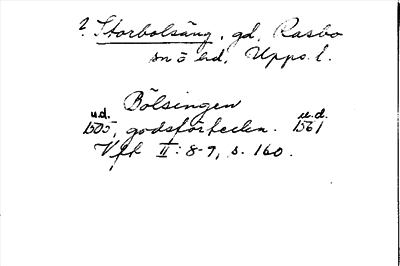 ? Storbolsäng, gd, Rasbo
sn o hd, Upps. l.
Bölsingen
u.d. u.d.
1505, godsförteckn. 1561
Vft II: 8-9, s. 160.